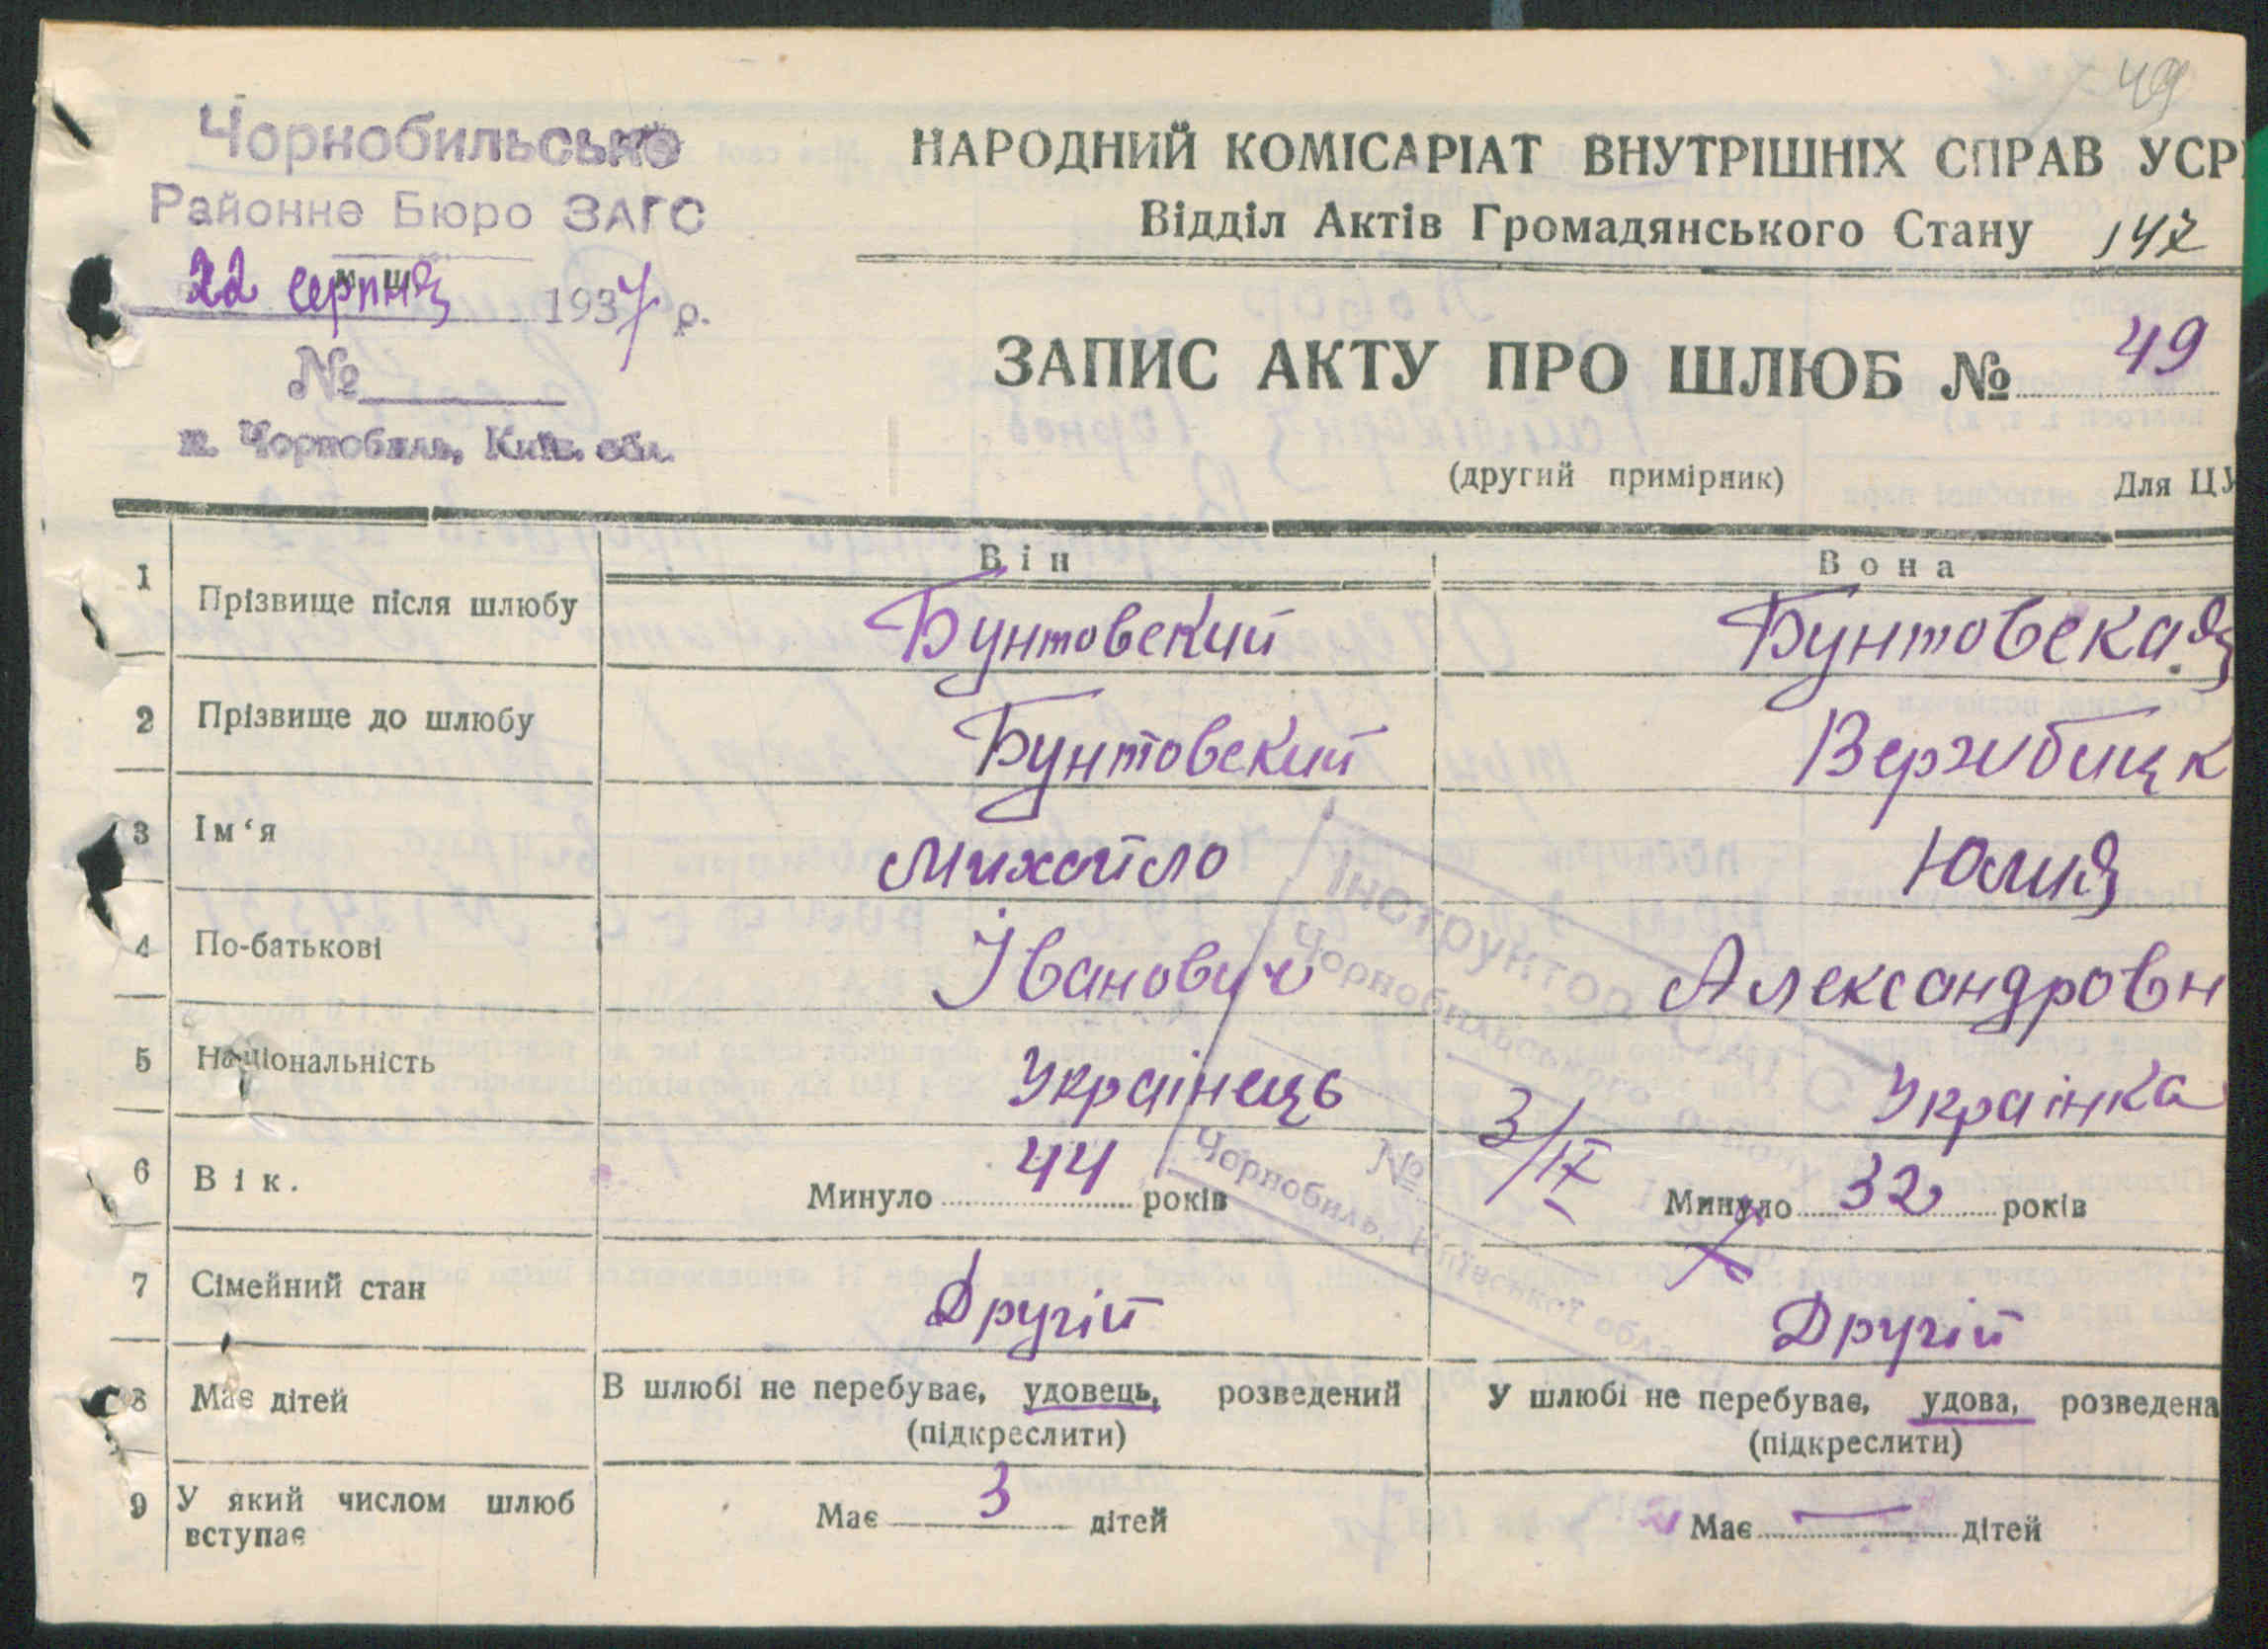 49
Чорнобильське
Районне Бюро ЗАГС
22 серпня 1937 р.
№
м. Чорнобиль, Київ. обл.
НАРОДНИЙ КОМІСАРІАТ ВНУТРІШНІХ СПРАВ УСР
Відділ Актів Громадянського Стану 147
ЗАПИС АКТУ ПРО ШЛЮБ № 49
(другий примірник) Для ЦУ
Він Вона
1 Прізвище після шлюбу Бунтовский Бунтовская
2 Прізвище до шлюбу Бунтовский Вержбицк
3 Ім‘я Михайло Юлия
4 По-батькові Іванович Александровн
5 Національність Украінець Украінка
6 Вік. Минуло 44 років Минуло 32 років
7 Сімейний стан Другій Другій
8 Має дітей В шлюбі не перебуває, удовець, розведений У шлюбі не перебуває, удова, розведена
(підкреслити) (підкреслити)
9 У який числом шлюб Має 3 дітей Має — дітей
вступає
Інструктор
Чорнобильського
№ 3/IX 7
Чорнобиль, Київської обл.